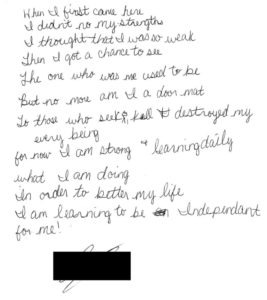 When I first came here
I didn't no my strengths
I thought that I was so weak
Then I got a chance to see
The one who was me used to be
But no more am I a door mat
To those who seek, kill & destroyed my
every being
for now I am strong & learning daily
what I am doing
In order to better my life
I am learning to be Independant
for me!